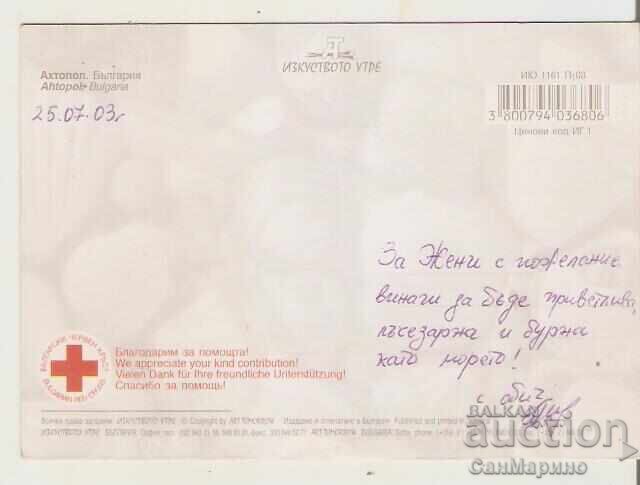 Ахтопол. България
Ahtopol. Bulgaria
25.07.03г
ИЗКУСТВОТО УТРЕ
3 800794 036806
Ценови код ИГ 1
За Жени с пожелание
винаги да бъде приветлива,
и бурна
като морето!
с обич
БЪЛГАРСКИ ЧЕРВЕН КРЪСТ
BULGARIAN RED CROSS
Благодарим за помощта!
We appreciate your kind contribution!
Vielen Dank für Ihre freundliche Unterstützung!
Спасибо за помощь!
Всички права запазени. ИЗКУСТВОТО УТРЕ © Copyright by ART TOMORROW Издадено и отпечатано в България Published and printed in
ИЗКУСТВОТО УТРЕ БЪЛГАРИЯ ART TOMORROW BULGARIA
BALKAN
auction
СанМарино